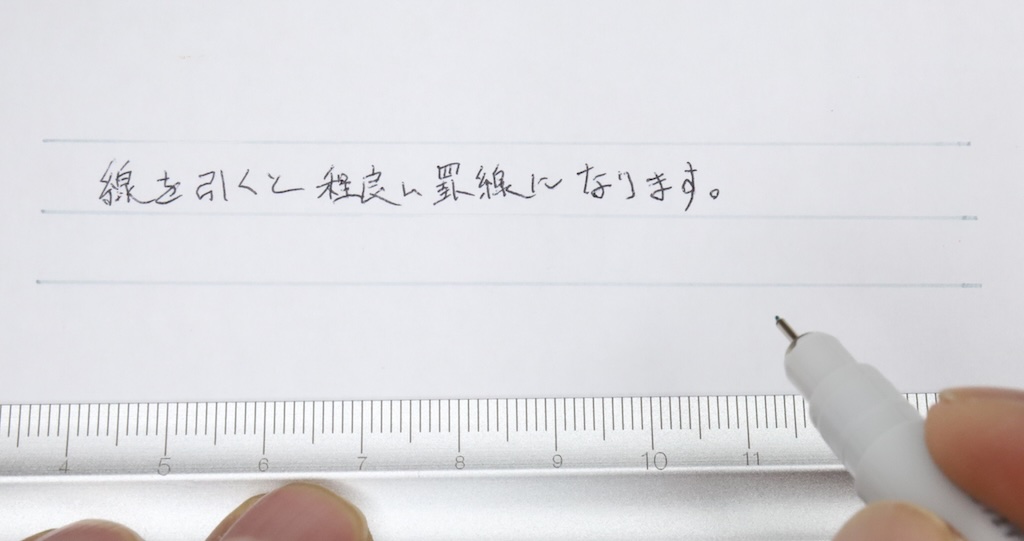 線を引くと程良い罫線になります。
4 5 6 7 8 9 10 11